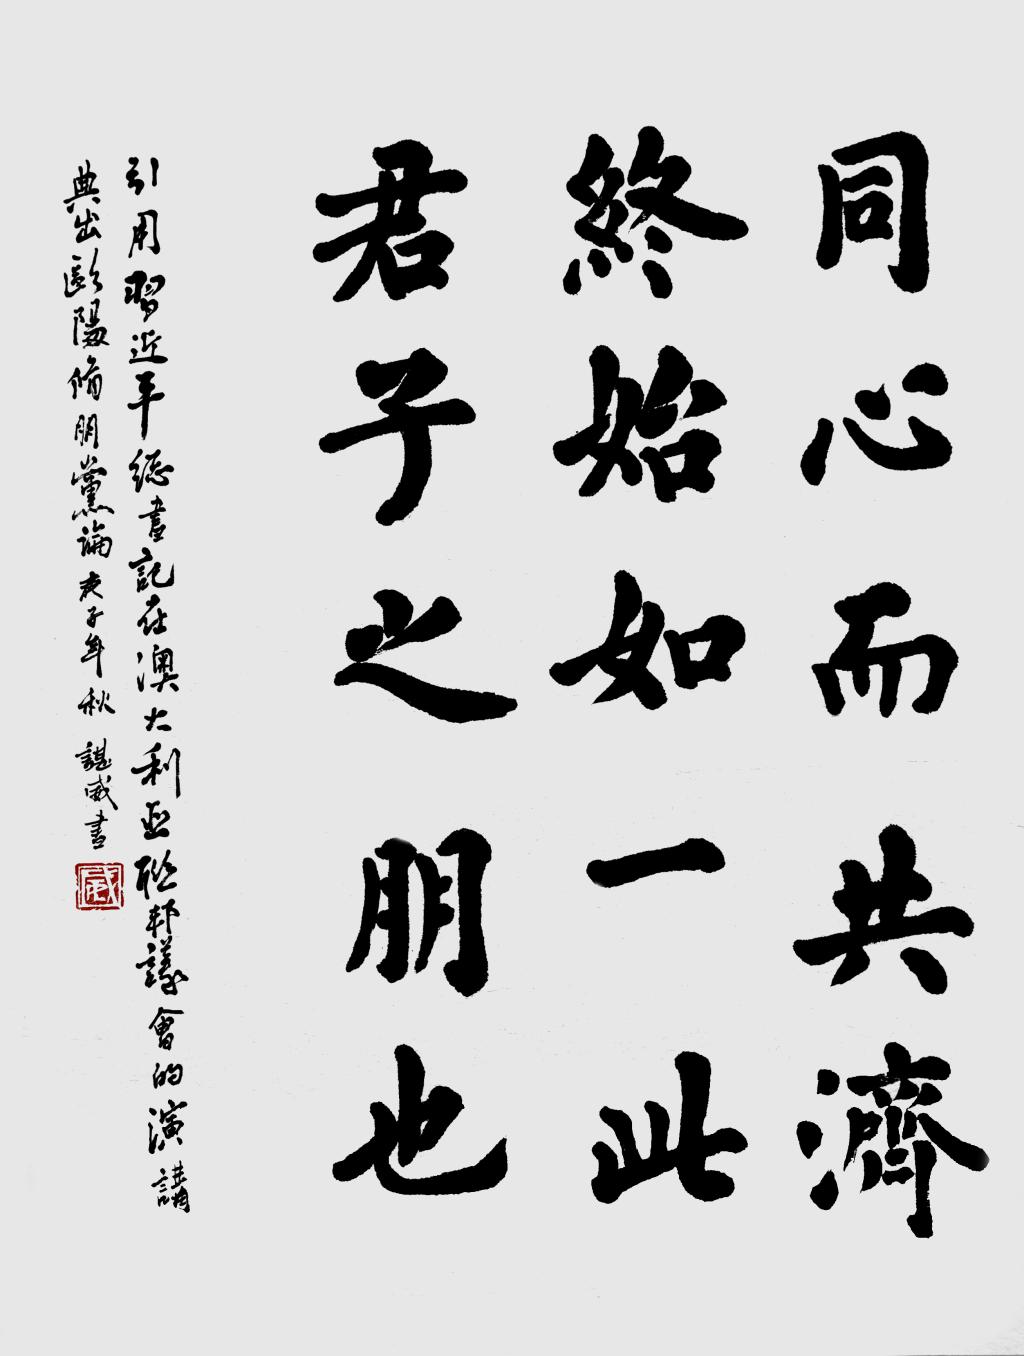 同心而共濟
終始如一此
君子之朋也
引用習近平總書記在澳大利亞聯邦議會的演講
典出歐陽脩朋黨論庚子年秋 諶威書
威